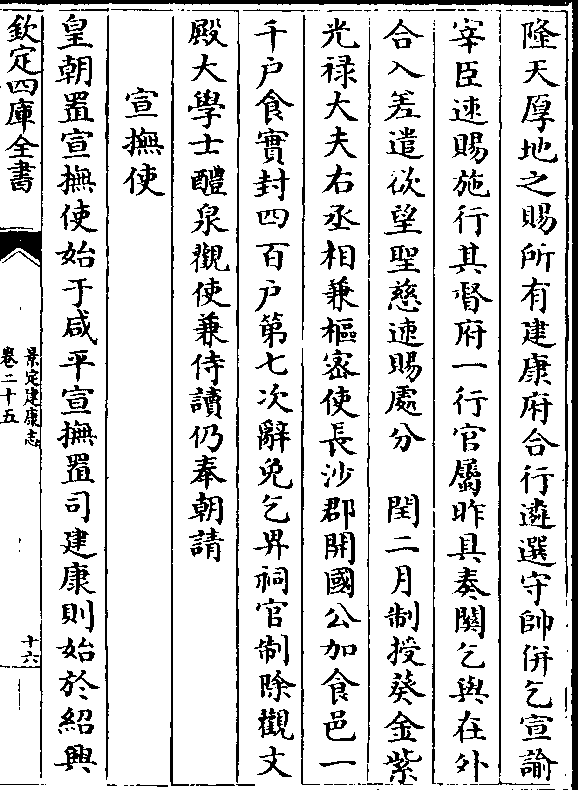 隆天厚地之賜所有建康府合行遴選守帥併乞宣諭
宰臣速賜施行其督府一行官屬昨具奏闗乞與在外
合入差遣欲望聖慈速賜處分　閏二月制授葵金紫
光禄大夫右丞相兼樞密使長沙郡開國公加食邑一
千户食實封四百户第七次辭免乞畀祠官制除觀文
殿大學士醴泉觀使兼侍讀仍奉朝請
宣撫使
皇朝置宣撫使始于咸平宣撫置司建康則始於紹興
欽定四庫全書
景定建康志
卷二十五
十六